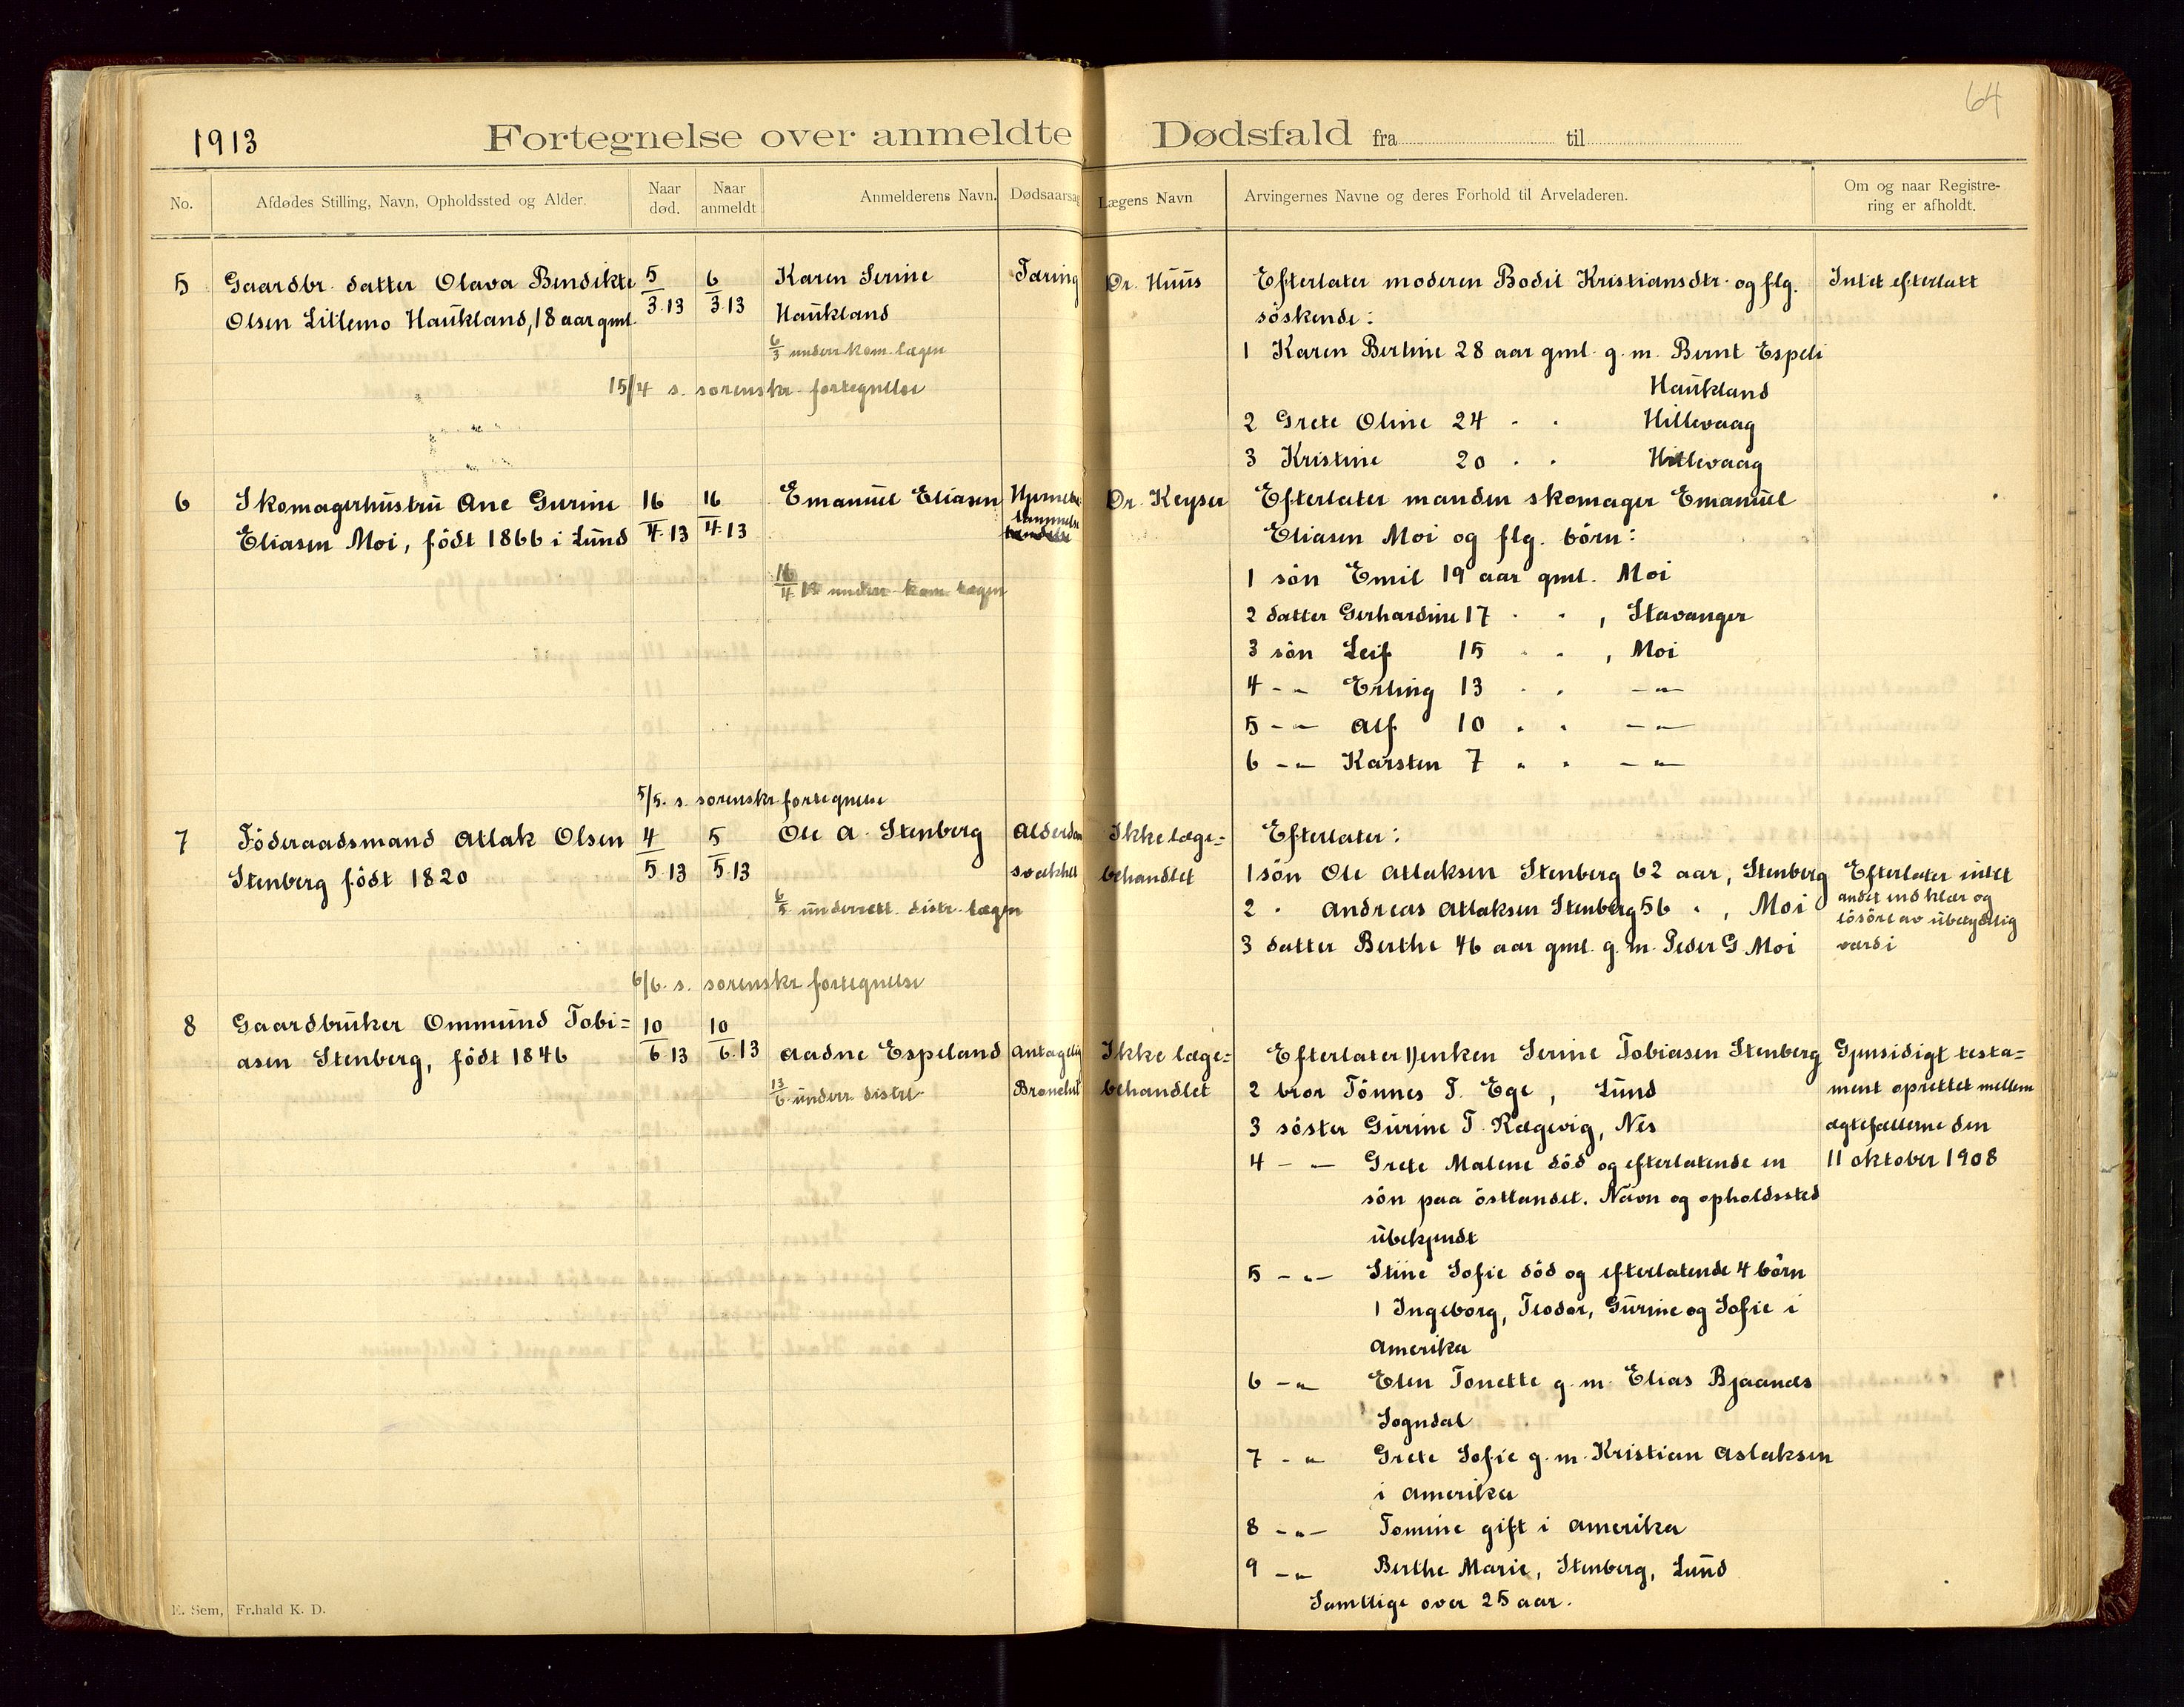 64
1913 Fortegnelse over anmeldte Dødsfald fra til
No. Afdødes Stilling, Navn, Opholdssted og Alder. Naar død. Naar anmeldt Anmelderens Navn. Dødsaarsag Lægens Navn Arvingernes Navne og deres Forhold til Arveladeren. Om og naar Registre-
ring er afholdt.
5 Gaardbr. datter Olava Bendikte 5/3.13 6/3.13 Karen Serine Tæring Dr. Huus Efterlater moderen Bodil Kristiansdtr. og flg. Intet efterlatt
Olsen Lillemo Haukland, 18 aar gml. Haukland söskende:
6/3 underr. kom. lægen 1 Karen Bertine 28 aar gml. g. m. Bernt Espeli
15/4 s. sorenskr. fortegnelse Haukland
2 Grete Oline 24 " " Hillevaag
3 Kristine 20 " " Hillevaag
6 Skomagerhustru Ane Gurine 16/4.13 16/4.13 Emanuel Eliasen Dr. Keyser Efterlater manden skomager Emanuel
Eliasen Moi, födt 1866 i Lund Eliasen Moi og flg. börn:
16/4 13 underr. kom. lægen 1 sön Emil 19 aar gml. Moi
2 datter Gerhardine 17 " " , Stavanger
3 sön Leif 15 " " , Moi
4 -"- Erling 13 " " -"-
5 -"- Alf 10 " " -"-
6 -"- Karsten 7 " " -"-
5/5. s. sorenskr. fortegnelse
7 Föderaadsmand Atlak Olsen 4/5.13 5/5.13 Ole A. Stenberg Alderdom Ikke læge= Efterlater:
Stenberg födt 1820 svakhet behandlet 1 sön Ole Atlaksen Stenberg 62 aar, Stenberg Efterlater intet
6/5 underrett. distr. lægen 2 " Andreas Atlaksen Stenberg 56 " , Moi andet end klær og
lösöre av ubetydelig
3 datter Berthe 46 aar gml. g. m. Peder G. Moi værdi
6/6. s. sorenskr fortegnelse
8 Gaardbruker Ommund Tobi= 10/6.13 10/6.13
asen Stenberg, födt 1846 Aadne Espeland Antagelig Ikke læge= Efterlater 1) enken Serine Tobiasen Stenberg Gjensidigt testa=
13/6 underr. distrl. behandlet 2 bror Tönnes T. Ege, Lund ment oprettet mellem
3 söster Gurine T. Rægevig, Nes ægtefællerne den
4 -"- Grete Malene död og efterlatende en 11 oktober 1908
sön paa östlandet. Navn og opholdssted
ubekjendt
5 -"- Stine Sofie död og efterlatende 4 börn
1 Ingeborg, Teodor, Gurine og Sofie i
Amerika
6 -"- Elen Tonette g. m. Elias Bjaanes
Sogndal
7 -"- Grete Sofie g. m. Kristian Aslaksen
i Amerika
8 -"- Tomine gift i Amerika
9 -"- Berthe Marie, Stenberg, Lund
Samtlige over 25 aar.
E. Sem, Fr.hald K. D.